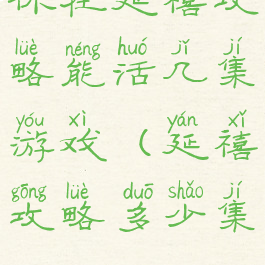 保在延禧攻
lüè néng huó jǐ jí
略能活几集
yóu xì yán xǐ
游戏（延禧
gōng lüè duō shǎo jí
攻略多少集